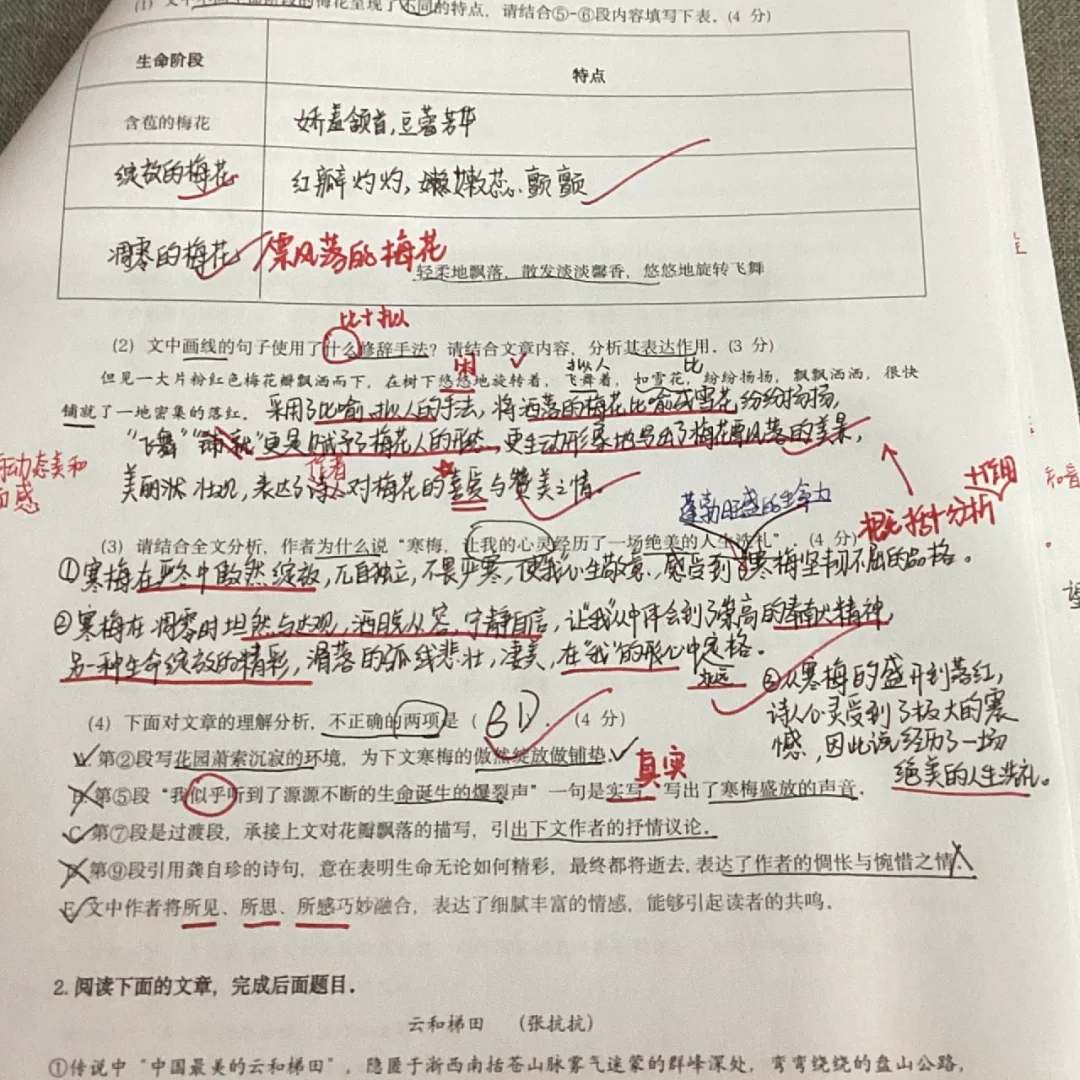 的梅花呈现了不同的特点，请结合⑤-⑥段内容填写下表．(4 分)
生命阶段 特点
含苞的梅花 娇羞颔首，豆蔻芳华
绽放的梅花 红瓣灼灼，嫩嫩蕊、颤颤
凋零的梅花 飘风落的梅花
轻柔地飘落，散发淡淡馨香，悠悠地旋转飞舞
比+拟
(2) 文中画线的句子使用了什么修辞手法？请结合文章内容，分析其表达作用．(3 分)
闲 拟人 比
但见一大片粉红色梅花瓣飘洒而下，在树下悠悠地旋转着，飞舞着，如雪花，纷纷扬扬，飘飘洒洒，很快
铺就了一地密集的落红． 采用了比喻、拟人的手法，将洒落的梅花比喻成雪花纷纷扬扬，
“飞舞”“铺就”更是赋予了梅花人的形态，更生动形象地写出了梅花飘风落的美景，
动态美和
作者
美丽状壮观，表达了诗人对梅花的喜爱与赞美之情。
感
蓬勃旺盛的生命力
概括+分析
+作用
(3) 请结合全文分析，作者为什么说“寒梅，让我的心灵经历了一场绝美的人生洗礼”．(4 分)
①寒梅在严冬中傲然绽放，兀自独立，不畏严寒，使“我”心生敬意，感受到寒梅坚韧不屈的品格。
②寒梅在凋零时坦然与达观，洒脱从容、宁静自信，让“我”从中体会到了崇高的奉献精神，
另一种生命绽放的精彩，滑落的弧线悲壮，凄美，在“我”的心中定格。
永远
③从寒梅的盛开到落红，
诗人心灵受到了极大的震
憾，因此说经历了一场
绝美的人生洗礼。
(4) 下面对文章的理解分析，不正确的两项是（ BD ）．(4 分)
A．第②段写花园萧索沉寂的环境，为下文寒梅的傲然绽放做铺垫．
真实
B．第⑤段“我似乎听到了源源不断的生命诞生的爆裂声”一句是实写，写出了寒梅盛放的声音．
C．第⑦段是过渡段，承接上文对花瓣飘落的描写，引出下文作者的抒情议论．
D．第⑨段引用龚自珍的诗句，意在表明生命无论如何精彩，最终都将逝去，表达了作者的惆怅与惋惜之情．
E．文中作者将所见、所思、所感巧妙融合，表达了细腻丰富的情感，能够引起读者的共鸣．
2. 阅读下面的文章，完成后面题目．
云和梯田 （张抗抗）
①传说中“中国最美的云和梯田”，隐匿于浙西南括苍山脉雾气迷蒙的群峰深处，弯弯绕绕的盘山公路，